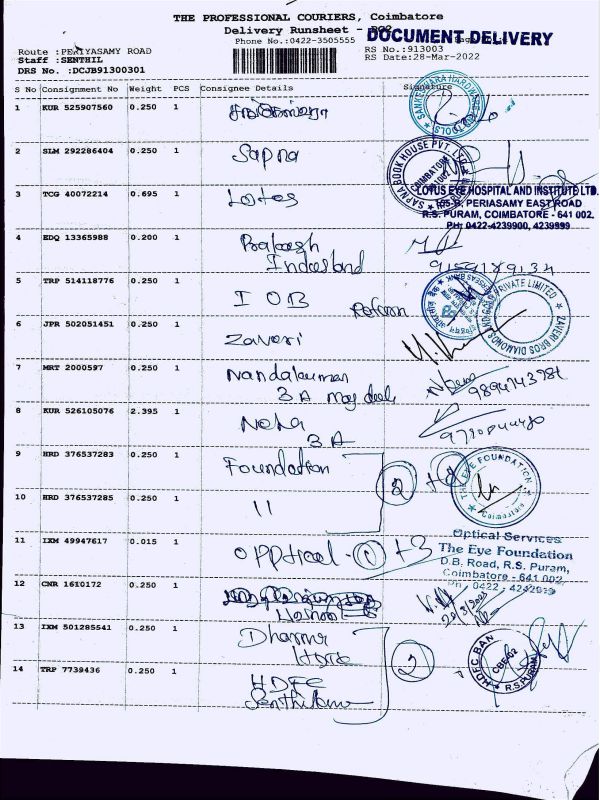 THE PROFESSIONAL COURIERS, Coimbatore
Delivery Runsheet -
DOCUMENT DELIVERY
Phone No.:0422-3505555
Route :PERIYASAMY ROAD
RS No.:913003
Staff :SENTHIL
RS Date:28-Mar-2022
DRS No. :DCJB91300301
S No Consignment No Weight PCS Consignee Details Signature
1 KUR 525907560 0.250 1
2 SLM 292286404 0.250 1 Sapna
SAPNA BOOK HOUSE PVT. LTD.
COIMBATORE
3 TCG 40072214 0.695 1 Lotus
LOTUS EYE HOSPITAL AND INSTITUTE LTD.
PERIASAMY EAST ROAD
R.S. PURAM, COIMBATORE - 641 002.
PH: 0422-4239900, 4239999
4 EDQ 13365988 0.200 1 Prakash
9159189134
5 TRP 514118776 0.250 1 IOB
6 JPR 502051451 0.250 1 Zaveri
ZAVERI BROS DIAMONDS AND PRIVATE LIMITED
7 MRT 2000597 0.250 1 Nandakumar
3A
8 KUR 526105076 2.395 1 Neha
3A
9 HRD 376537283 0.250 1 Foundation
2
THE EYE FOUNDATION
Coimbatore
10 HRD 376537285 0.250 1 11
11 IXM 49947617 0.015 1 Opptical - 1 +3
Optical Services
The Eye Foundation
D.B. Road, R.S. Puram,
Coimbatore - 641 002
Ph : 0422 - 4242929
12 CNR 1610172 0.250 1
13 IXM 501285541 0.250 1 Dharma
2
HDFC BAN
CBE-02
R.S.PURAM
14 TRP 7739436 0.250 1 HDFC
Senthilkumar